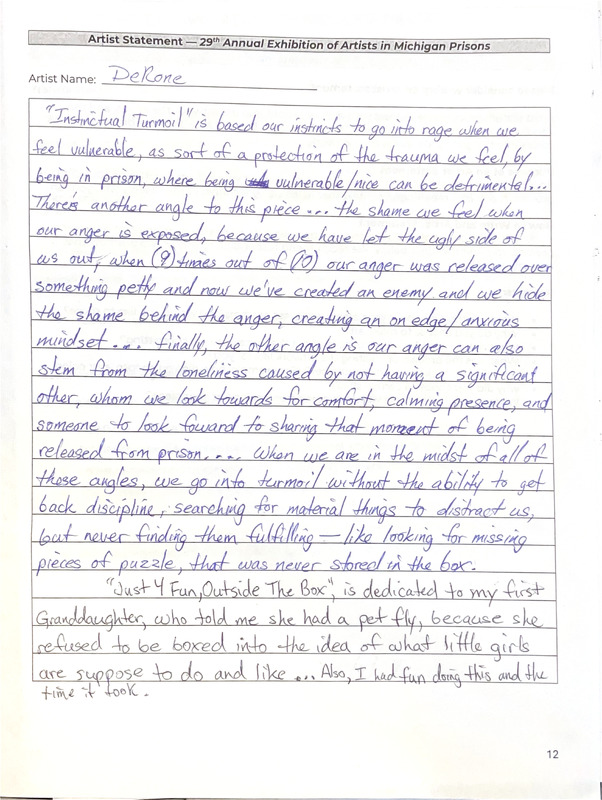 Artist Statement — 29th Annual Exhibition of Artists in Michigan Prisons
Artist Name: DeRone
"Instinctual Turmoil" is based our instincts to go into rage when we
feel vulnerable, as sort of a protection of the trauma we feel, by
being in prison, where being vulnerable/nice can be detrimental...
There's another angle to this piece... the shame we feel when
our anger is exposed, because we have let the ugly side of
us out, when (9) times out of (10) our anger was released over
something petty and now we've created an enemy and we hide
the shame behind the anger, creating an on edge/anxious
mindset.... finally, the other angle is our anger can also
stem from the loneliness caused by not having a significant
other, whom we look towards for comfort, calming presence, and
someone to look foward to sharing that moment of being
released from prison.... when we are in the midst of all of
those angles, we go into turmoil without the ability to get
back discipline, searching for material things to distract us,
but never finding them fulfilling — like looking for missing
pieces of puzzle, that was never stored in the box.
"Just 4 Fun, Outside The Box", is dedicated to my first
Granddaughter, who told me she had a pet fly, because she
refused to be boxed into the idea of what little girls
are suppose to do and like... Also, I had fun doing this and the
time it took.
12